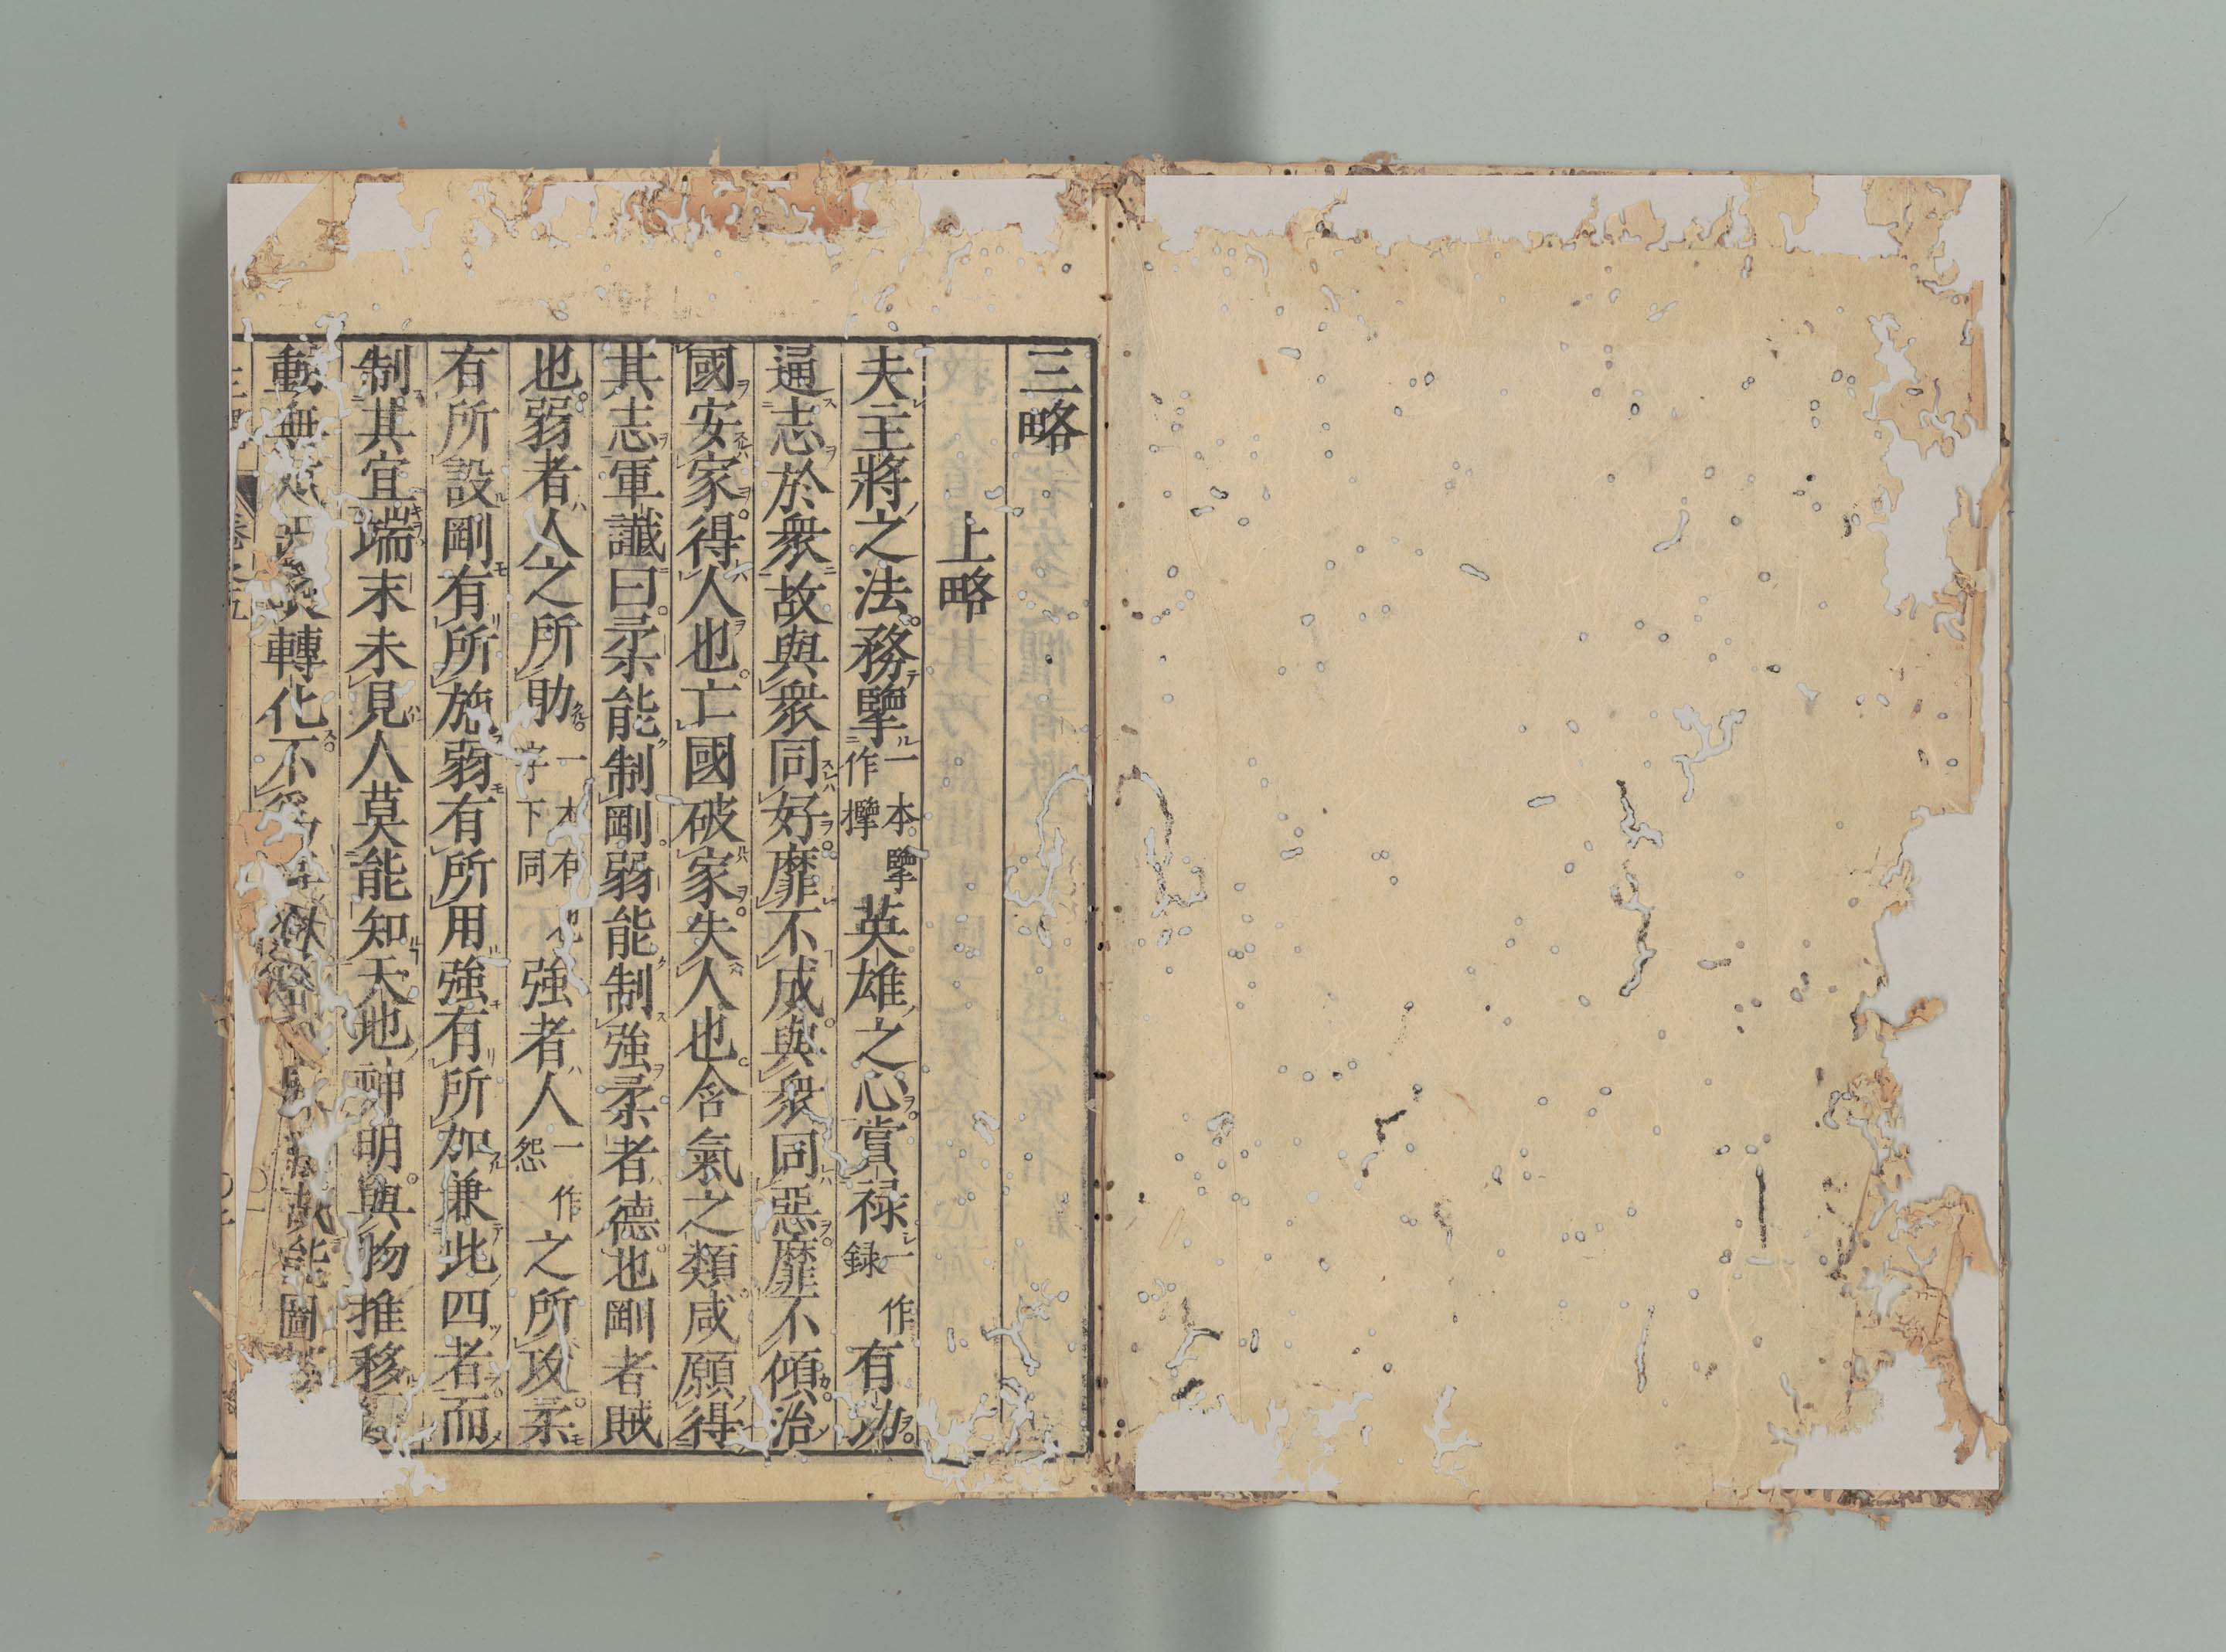 三略
上略
夫主將之法務擥一本擥作㩜英雄之心賞禄一作録有功
通志於衆故與衆同好靡不成與衆同惡靡不傾治
國安家得人也亡國破家失人也含氣之類咸願得
其志軍讖曰柔能制剛弱能制強柔者德也剛者賊
也弱者人之所助一本有字下同強者人一作怨之所攻柔
有所設剛有所施弱有所用強有所加兼此四者而
制其宜端末未見人莫能知天地神明與物推移
動無轉化不故能圖